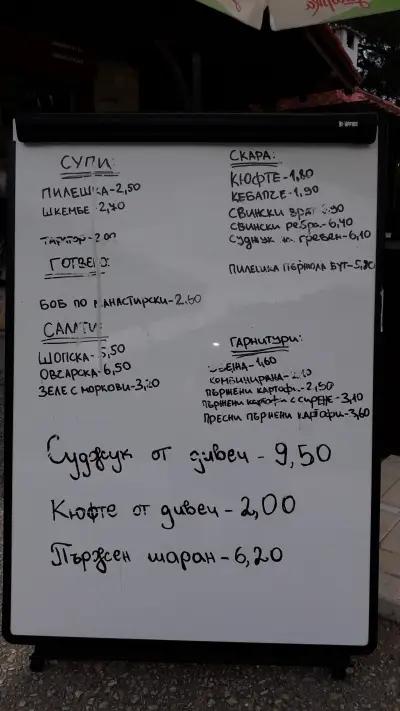 СУПИ:
ПИЛЕШКА-2,50
ШКЕМБЕ-2,70
ТАРАТОР-2,00
ГОТВЕНО:
БОБ ПО МАНАСТИРСКИ-2,60
САЛАТИ:
ШОПСКА-5,50
ОВЧАРСКА-6,50
ЗЕЛЕ С МОРКОВИ-3,20
СКАРА:
КЮФТЕ-1,80
КЕБАПЧЕ-1,90
СВИНСКИ ВРАТ
СВИНСКИ РЕБРА-6,40
СУДЖУК НА ГРЕБЕН-6,10
ПИЛЕШКА ПЪРЖОЛА БУТ-5,80
ГАРНИТУРИ:
-1,60
КОМБИНИРАНА
ПЪРЖЕНИ КАРТОФИ-2,50
ПЪРЖЕНИ КАРТОФИ С СИРЕНЕ-3,10
ПРЕСНИ ПЪРЖЕНИ КАРТОФИ-3,60
Суджук от дивеч - 9,50
Кюфте от дивеч - 2,00
Пържен шаран - 6,20